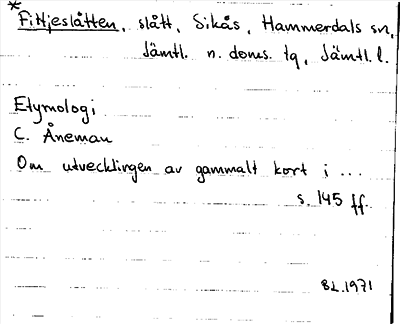 *Fittjeslåtten, slått, Sikås, Hammerdals sn,
Jämtl. n. doms. tg, Jämtl. l.
Etymologi
C. Åneman
Om utvecklingen av gammalt kort i ...
s. 145 ff.
BL.1971